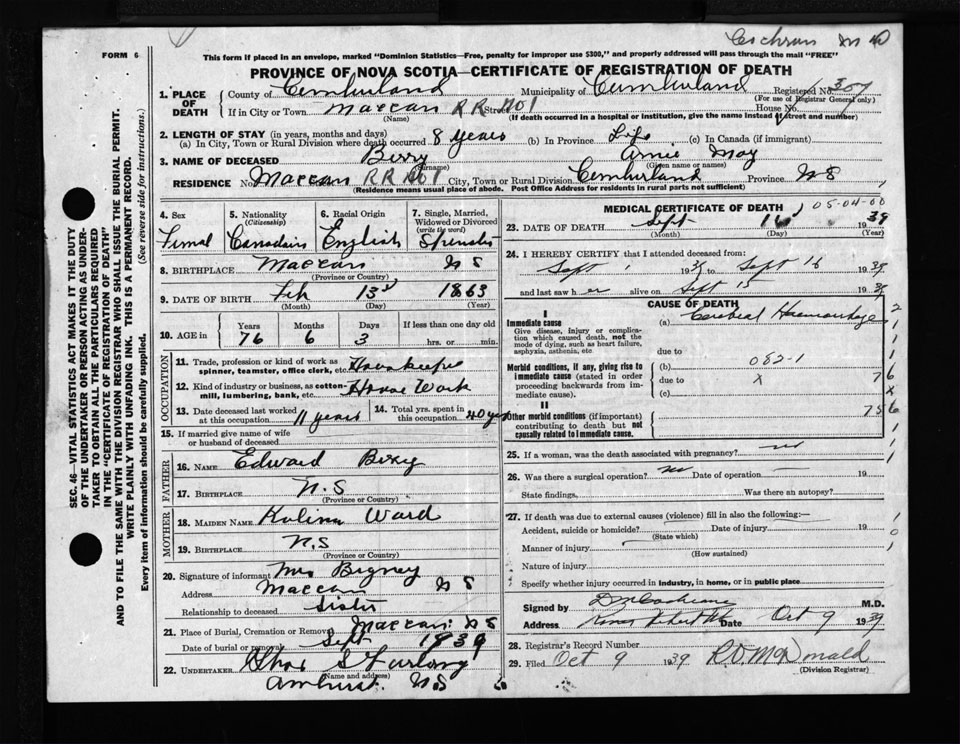 Cochran M D
FORM 6
This form if placed in an envelope, marked "Dominion Statistics—Free, penalty for improper use $300," and properly addressed will pass through the mail "FREE"
PROVINCE OF NOVA SCOTIA—CERTIFICATE OF REGISTRATION OF DEATH
SEC. 46—VITAL STATISTICS ACT MAKES IT THE DUTY
OF THE UNDERTAKER OR PERSON ACTING AS UNDER-
TAKER TO OBTAIN ALL THE PARTICULARS REQUIRED
IN THE "CERTIFICATE OF REGISTRATION OF DEATH"
AND TO FILE THE SAME WITH THE DIVISION REGISTRAR WHO SHALL ISSUE THE BURIAL PERMIT.
WRITE PLAINLY WITH UNFADING INK. THIS IS A PERMANENT RECORD.
Every item of information should be carefully supplied. (See reverse side for instructions.)
1. PLACE OF DEATH
County of Cumberland Municipality of Cumberland Registered No. 307
(For use of Registrar General only)
If in City or Town Maccan RR No 1 Street House No.
(Name) (If death occurred in a hospital or institution, give the name instead of street and number)
2. LENGTH OF STAY (in years, months and days)
(a) In City, Town or Rural Division where death occurred 8 years (b) In Province Life (c) In Canada (if immigrant)
3. NAME OF DECEASED Berry Amie May
(Surname) (Given name or names)
RESIDENCE No. Maccan RR No 1 City, Town or Rural Division Cumberland Province N S
(Residence means usual place of abode. Post Office Address for residents in rural parts not sufficient)
4. Sex Femal
5. Nationality (Citizenship) Canadain
6. Racial Origin English
7. Single, Married, Widowed or Divorced (write the word) Spinster
8. BIRTHPLACE Maccan N S
(Province or Country)
9. DATE OF BIRTH Feb 13 1863
(Month) (Day) (Year)
10. AGE in Years Months Days If less than one day old
76 6 3 hrs. or min.
OCCUPATION
11. Trade, profession or kind of work as spinner, teamster, office clerk, etc. Housekeeper
12. Kind of industry or business, as cotton-mill, lumbering, bank, etc. House Work
13. Date deceased last worked at this occupation 11 years
14. Total yrs. spent in this occupation 40 years
15. If married give name of wife or husband of deceased
FATHER
16. NAME Edward Berry
17. BIRTHPLACE N.S
(Province or Country)
MOTHER
18. MAIDEN NAME Kolina Ward
19. BIRTHPLACE N.S
(Province or Country)
20. Signature of informant Mrs Bigney
Address Maccan N S
Relationship to deceased Sister
21. Place of Burial, Cremation or Removal Maccan N S
Date of burial or removal Sept 1939
22. UNDERTAKER Chas S Furlong
(Name and address)
Amherst N.S
MEDICAL CERTIFICATE OF DEATH 05-04-00
23. DATE OF DEATH Sept 16 1939
(Month) (Day) (Year)
24. I HEREBY CERTIFY that I attended deceased from:
Sept 1 1939 to Sept 16 1939
and last saw her alive on Sept 15 1939
CAUSE OF DEATH
I
Immediate cause (a) Cerebral Haemorrhage
Give disease, injury or complica-
tion which caused death, not the
mode of dying, such as heart failure,
asphyxia, asthenia, etc due to
Morbid conditions, if any, giving rise to (b) 082-1
immediate cause (stated in order due to X 76
proceeding backwards from im-
mediate cause). (c) X
II
Other morbid conditions (if important) 756
contributing to death but not
causally related to immediate cause.
25. If a woman, was the death associated with pregnancy? no
26. Was there a surgical operation? no Date of operation 19
State findings Was there an autopsy?
27. If death was due to external causes (violence) fill in also the following:—
Accident, suicide or homicide? Date of injury 19
(State which)
Manner of injury
(How sustained)
Nature of injury
Specify whether injury occurred in industry, in home, or in public place
Signed by D M Cochrane M.D.
Address River Hebert N.S. Date Oct 9 1939
28. Registrar's Record Number
29. Filed Oct 9 1939 McDonald
(Division Registrar)